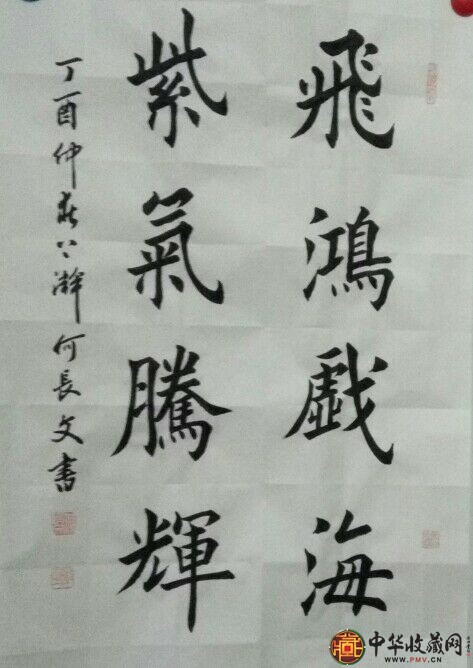 飛鴻戱海
紫氣騰輝
丁酉仲春上澣何長文書
中华收藏网
WWW.PMV.CN